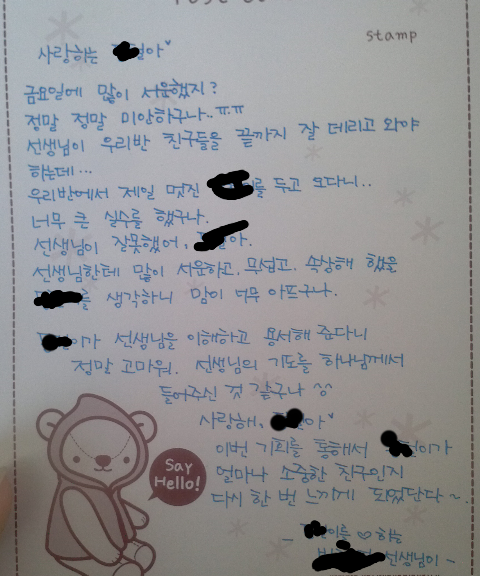 stamp
사랑하는 아♥
금요일에 많이 서운했지?
정말 정말 미안하구나..ㅠㅠ
선생님이 우리반 친구들을 끝까지 잘 데리고 와야
하는데...
우리반에서 제일 멋진 를 두고 오다니..
너무 큰 실수를 했구나.
선생님이 잘못했어, 아.
선생님한테 많이 서운하고, 무섭고, 속상해 했을
를 생각하니 맘이 너무 아프구나.
가 선생님을 이해하고 용서해 준다니
정말 고마워. 선생님의 기도를 하나님께서
들어주신 것 같구나 ^^
사랑해, 아♥
이번 기회를 통해서 이가
얼마나 소중한 친구인지
다시 한 번 느끼게 되었단다~.
- 이를 ♡하는
선생님이 -
Say
Hello!